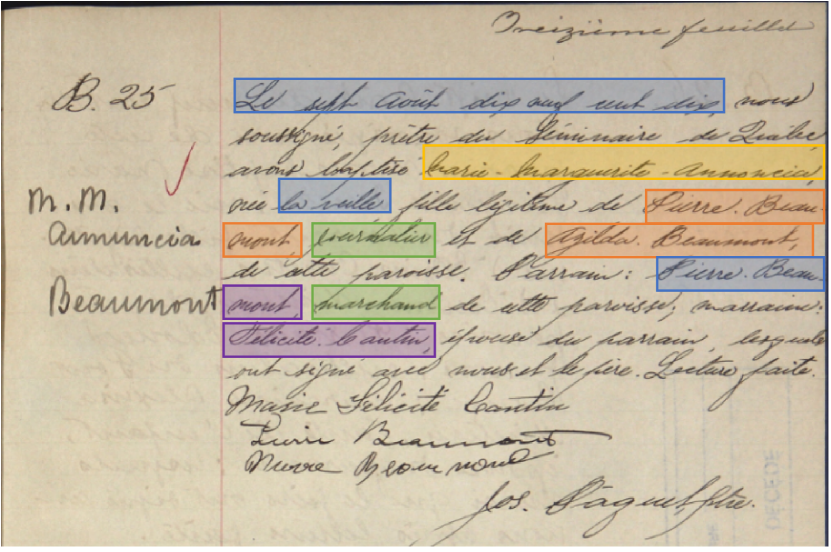 Treizième feuillet
B. 25
Le sept Août dix neuf cent dix, nous
soussigné, prêtre du Séminaire de Québec
avons baptisé Marie-Marguerite-Annoncia,
née la veille fille légitime de Pierre Beau-
M. M.
Annuncia
Beaumont
mont, journalier et de Agilda Beaumont,
de cette paroisse. Parrain: Pierre Beau-
mont, marchand de cette paroisse; marraine:
Félicité Cantin, épouse du parrain, lesquels
ont signé avec nous et le père. Lecture faite.
Marie Félicité Cantin
Pierre Beaumont
Pierre Beaumont
Jos. Paquet, ptre.